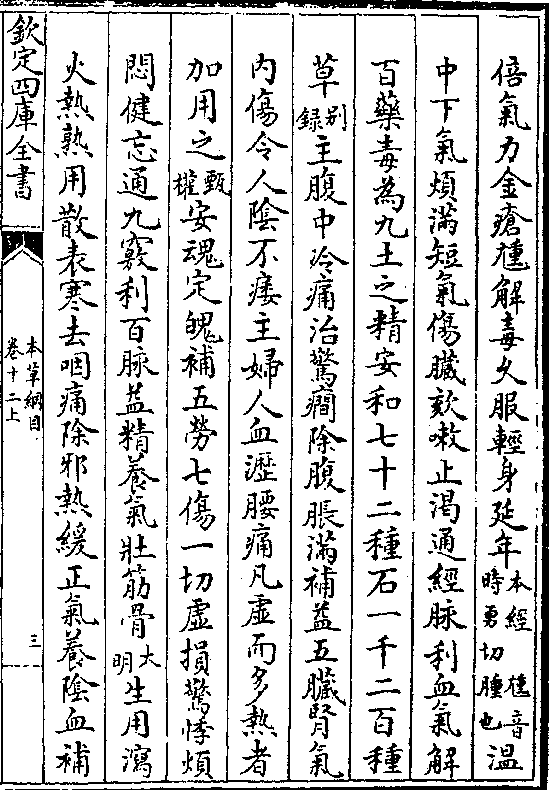 倍氣力金瘡尰解毒久服輕身延年本經尰音時勇切腫也溫
中下氣煩滿短氣傷臓欬嗽止渴通經脉利血氣解
百藥毒為九土之精安和七十二種石一千二百種
草别録主腹中冷痛治驚癎除腹脹滿補益五臓腎氣
内傷令人陰不痿主婦人血瀝腰痛凡虛而多熱者
加用之甄權安魂定魄補五勞七傷一切虛損驚悸煩
悶健忘通九竅利百脉益精養氣壯筋骨大明生用瀉
火熱熟用散表寒去咽痛除邪熱緩正氣養陰血補
欽定四庫全書
本草綱目
卷十二上
三